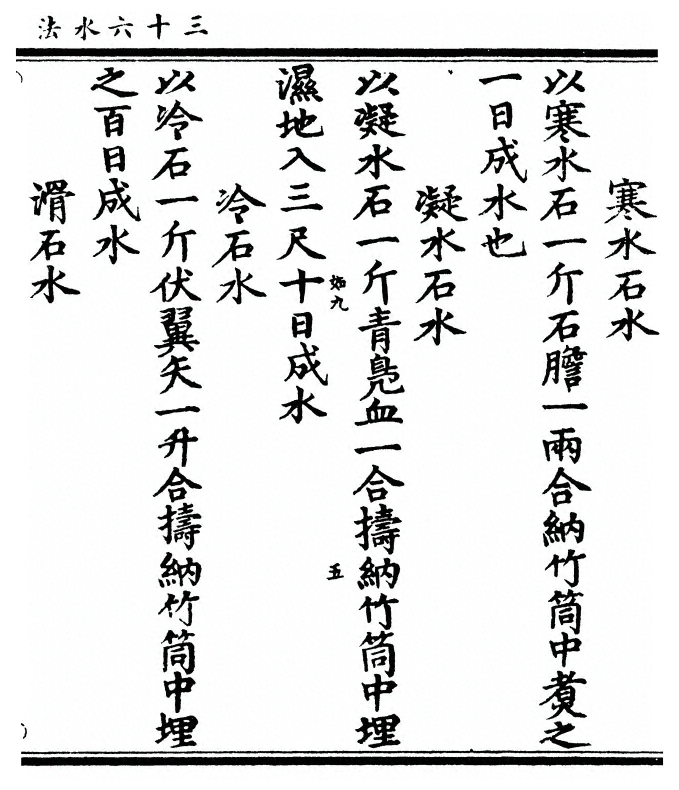 三十六水法
寒水石水
以寒水石一斤石膽一兩合納竹筒中煑之
一日成水也
凝水石水
以凝水石一斤青鳧血一合擣納竹筒中埋
九
五
濕地入三尺十日成水
冷石水
以冷石一斤伏翼矢一升合擣納竹筒中埋
之百日成水
滑石水